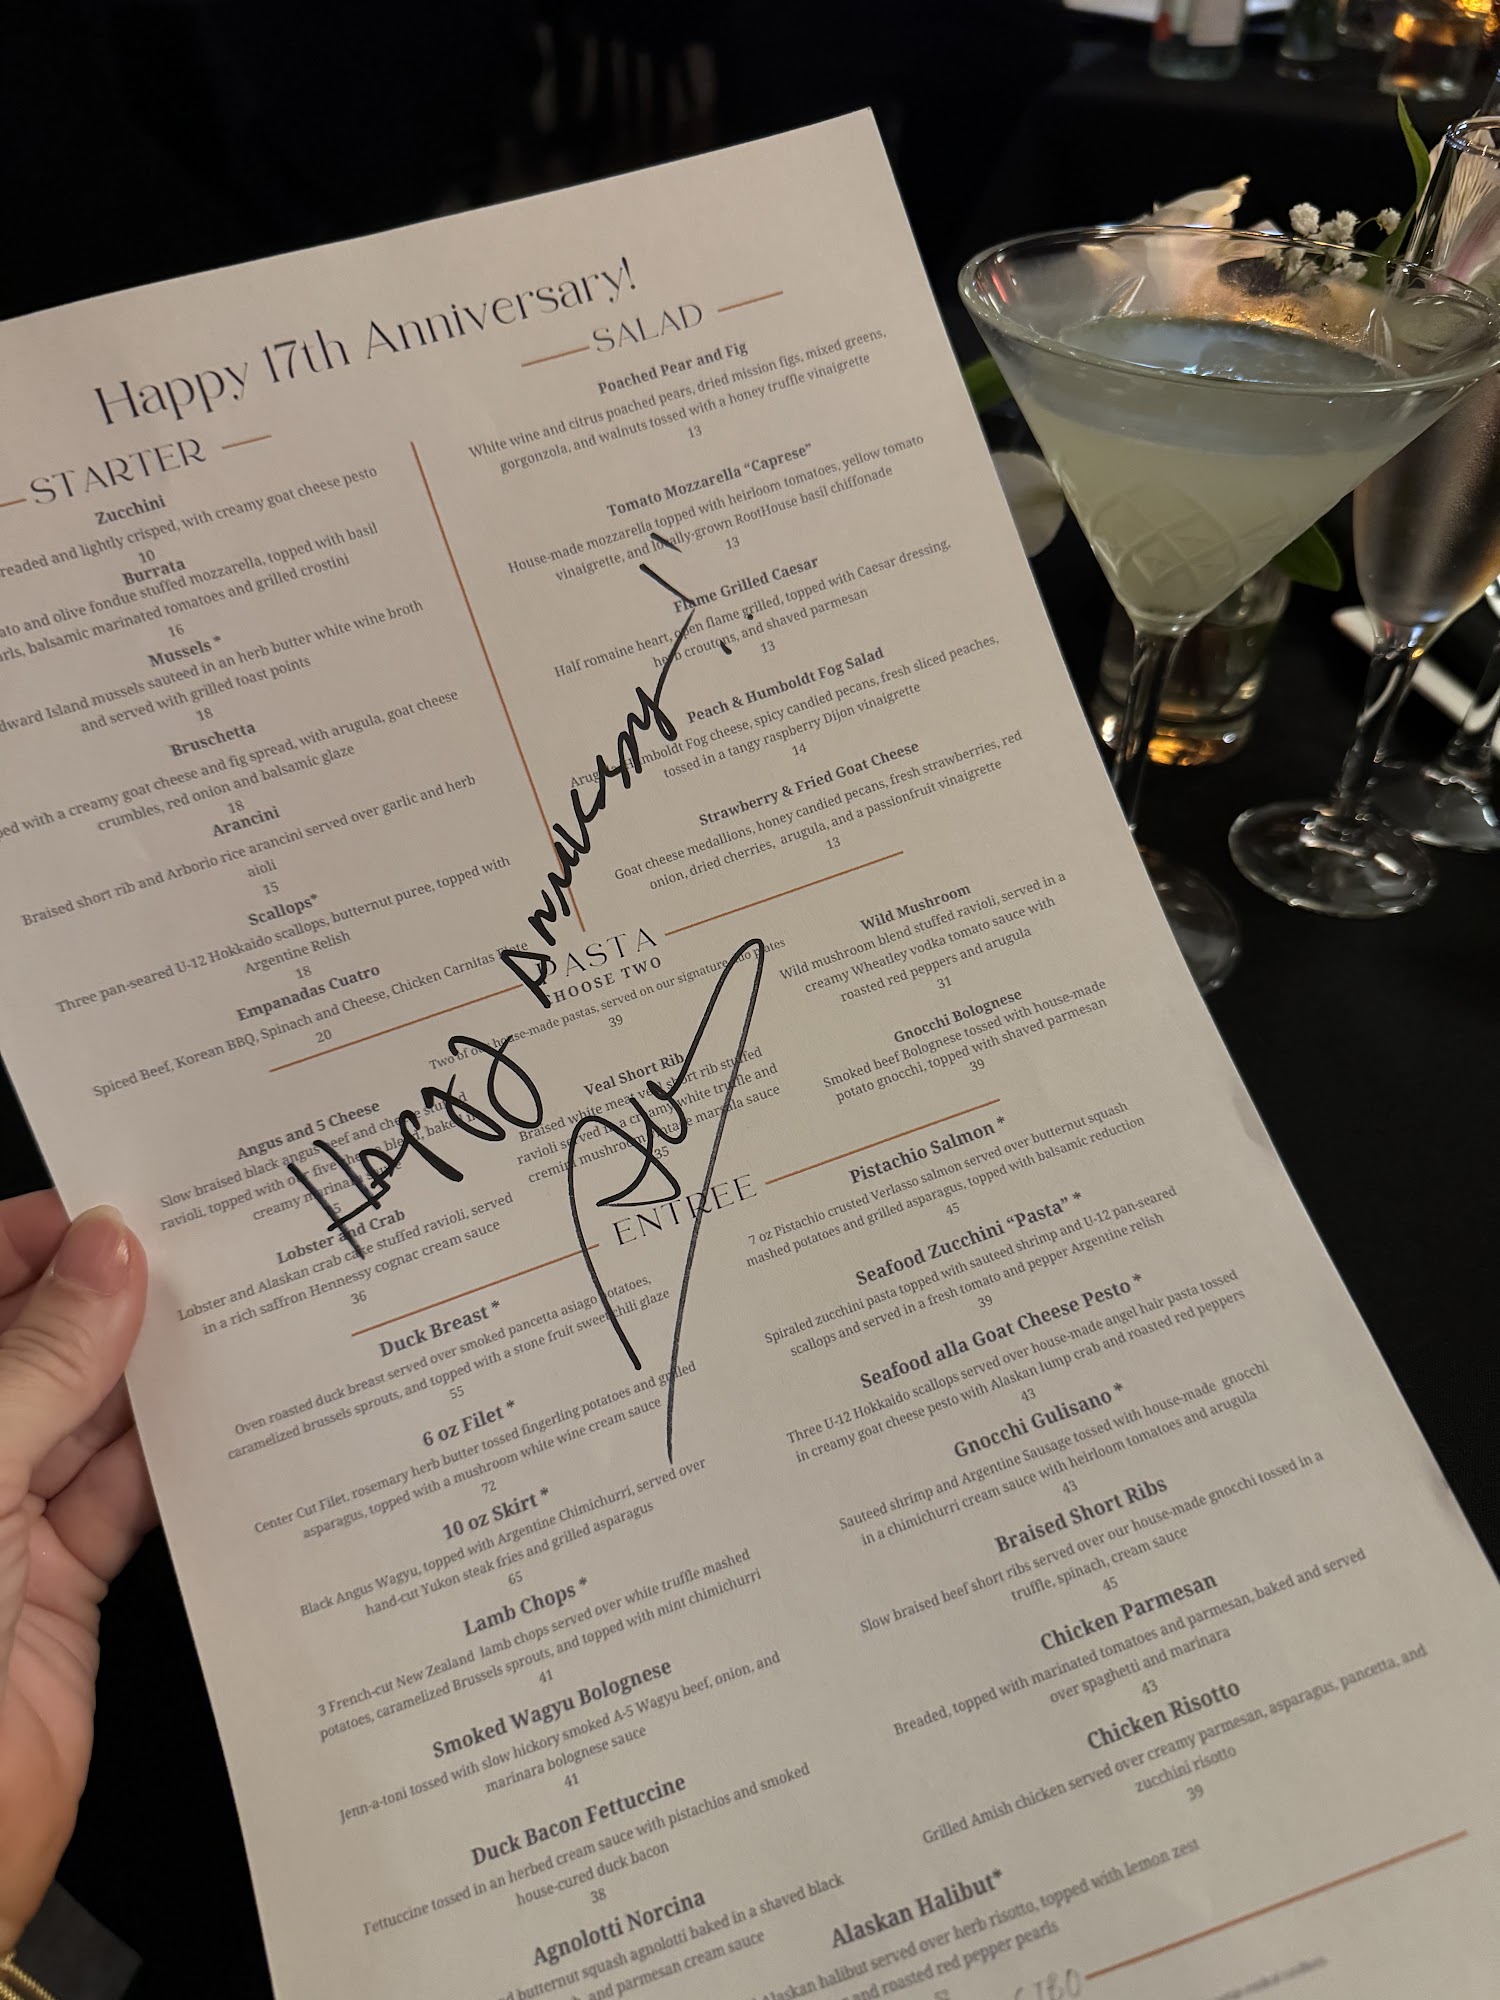 Happy 17th Anniversary!
STARTER
Zucchini
readed and lightly crisped, with creamy goat cheese pesto
10
Burrata
ato and olive fondue stuffed mozzarella, topped with basil
rls, balsamic marinated tomatoes and grilled crostini
16
Mussels *
dward Island mussels sauteed in an herb butter white wine broth
and served with grilled toast points
18
Bruschetta
ped with a creamy goat cheese and fig spread, with arugula, goat cheese
crumbles, red onion and balsamic glaze
18
Arancini
Braised short rib and Arborio rice arancini served over garlic and herb
aioli
15
Scallops*
Three pan-seared U-12 Hokkaido scallops, butternut puree, topped with
Argentine Relish
18
Empanadas Cuatro
Spiced Beef, Korean BBQ, Spinach and Cheese, Chicken Carnitas
20
SALAD
Poached Pear and Fig
White wine and citrus poached pears, dried mission figs, mixed greens,
gorgonzola, and walnuts tossed with a honey truffle vinaigrette
13
Tomato Mozzarella “Caprese”
House-made mozzarella topped with heirloom tomatoes, yellow tomato
vinaigrette, and locally-grown RootHouse basil chiffonade
13
Flame Grilled Caesar
Half romaine heart, open flame grilled, topped with Caesar dressing,
herb croutons, and shaved parmesan
13
Peach & Humboldt Fog Salad
Arugula, Humboldt Fog cheese, spicy candied pecans, fresh sliced peaches,
tossed in a tangy raspberry Dijon vinaigrette
14
Strawberry & Fried Goat Cheese
Goat cheese medallions, honey candied pecans, fresh strawberries, red
onion, dried cherries, arugula, and a passionfruit vinaigrette
13
Happy Anniversary!
PASTA
CHOOSE TWO
Two of our house-made pastas, served on our signature duo plates
39
Angus and 5 Cheese
Slow braised black angus beef and cheese stuffed
ravioli, topped with our five cheese blend, baked in
creamy marinara sauce
Lobster and Crab
Lobster and Alaskan crab cake stuffed ravioli, served
in a rich saffron Hennessy cognac cream sauce
36
Veal Short Rib
Braised white meat veal short rib stuffed
ravioli served in a creamy white truffle and
cremini mushroom vintage marsala sauce
35
Wild Mushroom
Wild mushroom blend stuffed ravioli, served in a
creamy Wheatley vodka tomato sauce with
roasted red peppers and arugula
31
Gnocchi Bolognese
Smoked beef Bolognese tossed with house-made
potato gnocchi, topped with shaved parmesan
39
ENTREE
Duck Breast *
Oven roasted duck breast served over smoked pancetta asiago potatoes,
caramelized brussels sprouts, and topped with a stone fruit sweet chili glaze
55
6 oz Filet *
Center Cut Filet, rosemary herb butter tossed fingerling potatoes and grilled
asparagus, topped with a mushroom white wine cream sauce
72
10 oz Skirt *
Black Angus Wagyu, topped with Argentine Chimichurri, served over
hand-cut Yukon steak fries and grilled asparagus
65
Lamb Chops *
3 French-cut New Zealand lamb chops served over white truffle mashed
potatoes, caramelized Brussels sprouts, and topped with mint chimichurri
41
Smoked Wagyu Bolognese
Jenn-a-toni tossed with slow hickory smoked A-5 Wagyu beef, onion, and
marinara bolognese sauce
41
Duck Bacon Fettuccine
Fettuccine tossed in an herbed cream sauce with pistachios and smoked
house-cured duck bacon
38
Agnolotti Norcina
butternut squash agnolotti baked in a shaved black
and parmesan cream sauce
Pistachio Salmon *
7 oz Pistachio crusted Verlasso salmon served over butternut squash
mashed potatoes and grilled asparagus, topped with balsamic reduction
45
Seafood Zucchini “Pasta” *
Spiraled zucchini pasta topped with sauteed shrimp and U-12 pan-seared
scallops and served in a fresh tomato and pepper Argentine relish
39
Seafood alla Goat Cheese Pesto *
Three U-12 Hokkaido scallops served over house-made angel hair pasta tossed
in creamy goat cheese pesto with Alaskan lump crab and roasted red peppers
43
Gnocchi Gulisano *
Sauteed shrimp and Argentine Sausage tossed with house-made gnocchi
in a chimichurri cream sauce with heirloom tomatoes and arugula
43
Braised Short Ribs
Slow braised beef short ribs served over our house-made gnocchi tossed in a
truffle, spinach, cream sauce
45
Chicken Parmesan
Breaded, topped with marinated tomatoes and parmesan, baked and served
over spaghetti and marinara
43
Chicken Risotto
Grilled Amish chicken served over creamy parmesan, asparagus, pancetta, and
zucchini risotto
39
Alaskan Halibut*
Alaskan halibut served over herb risotto, topped with lemon zest
and roasted red pepper pearls
52
CIBO